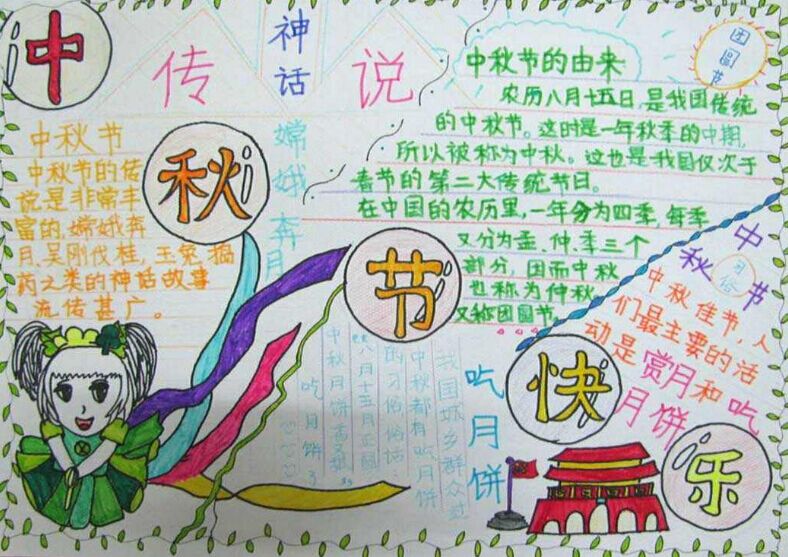 中
秋
节
快
乐
神话
传说
团圆节
中秋节
中秋节的传
说是非常丰
富的,嫦娥奔
月,吴刚伐桂,玉兔捣
药之类的神话故事
流传甚广。
嫦娥奔月
中秋节的由来
农历八月十五日,是我国传统
的中秋节。这时是一年秋季的中期,
所以被称为中秋。这也是我国仅次于
春节的第二大传统节日。
在中国的农历里,一年分为四季,每季
又分为孟、仲、季三个
部分,因而中秋
也称为仲秋,
又称团圆节
中秋节
习俗
中秋佳节,人
们最主要的活
动是赏月和吃
月饼
吃月饼
我国城乡群众过
中秋都有吃月饼
的习俗,俗话:
“八月十五月正圆
中秋月饼香又甜”
吃月饼了